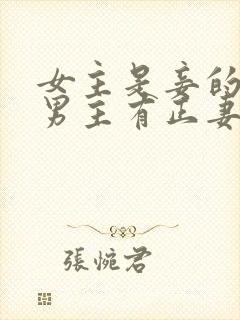 女主是妾的
男主有正妻
張惋君